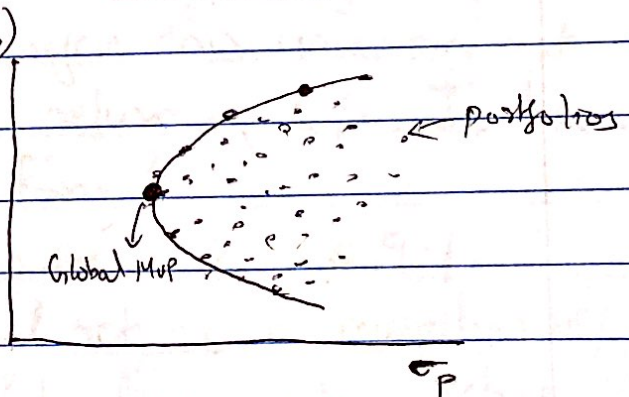 )
portfolios
Global MVP
σp